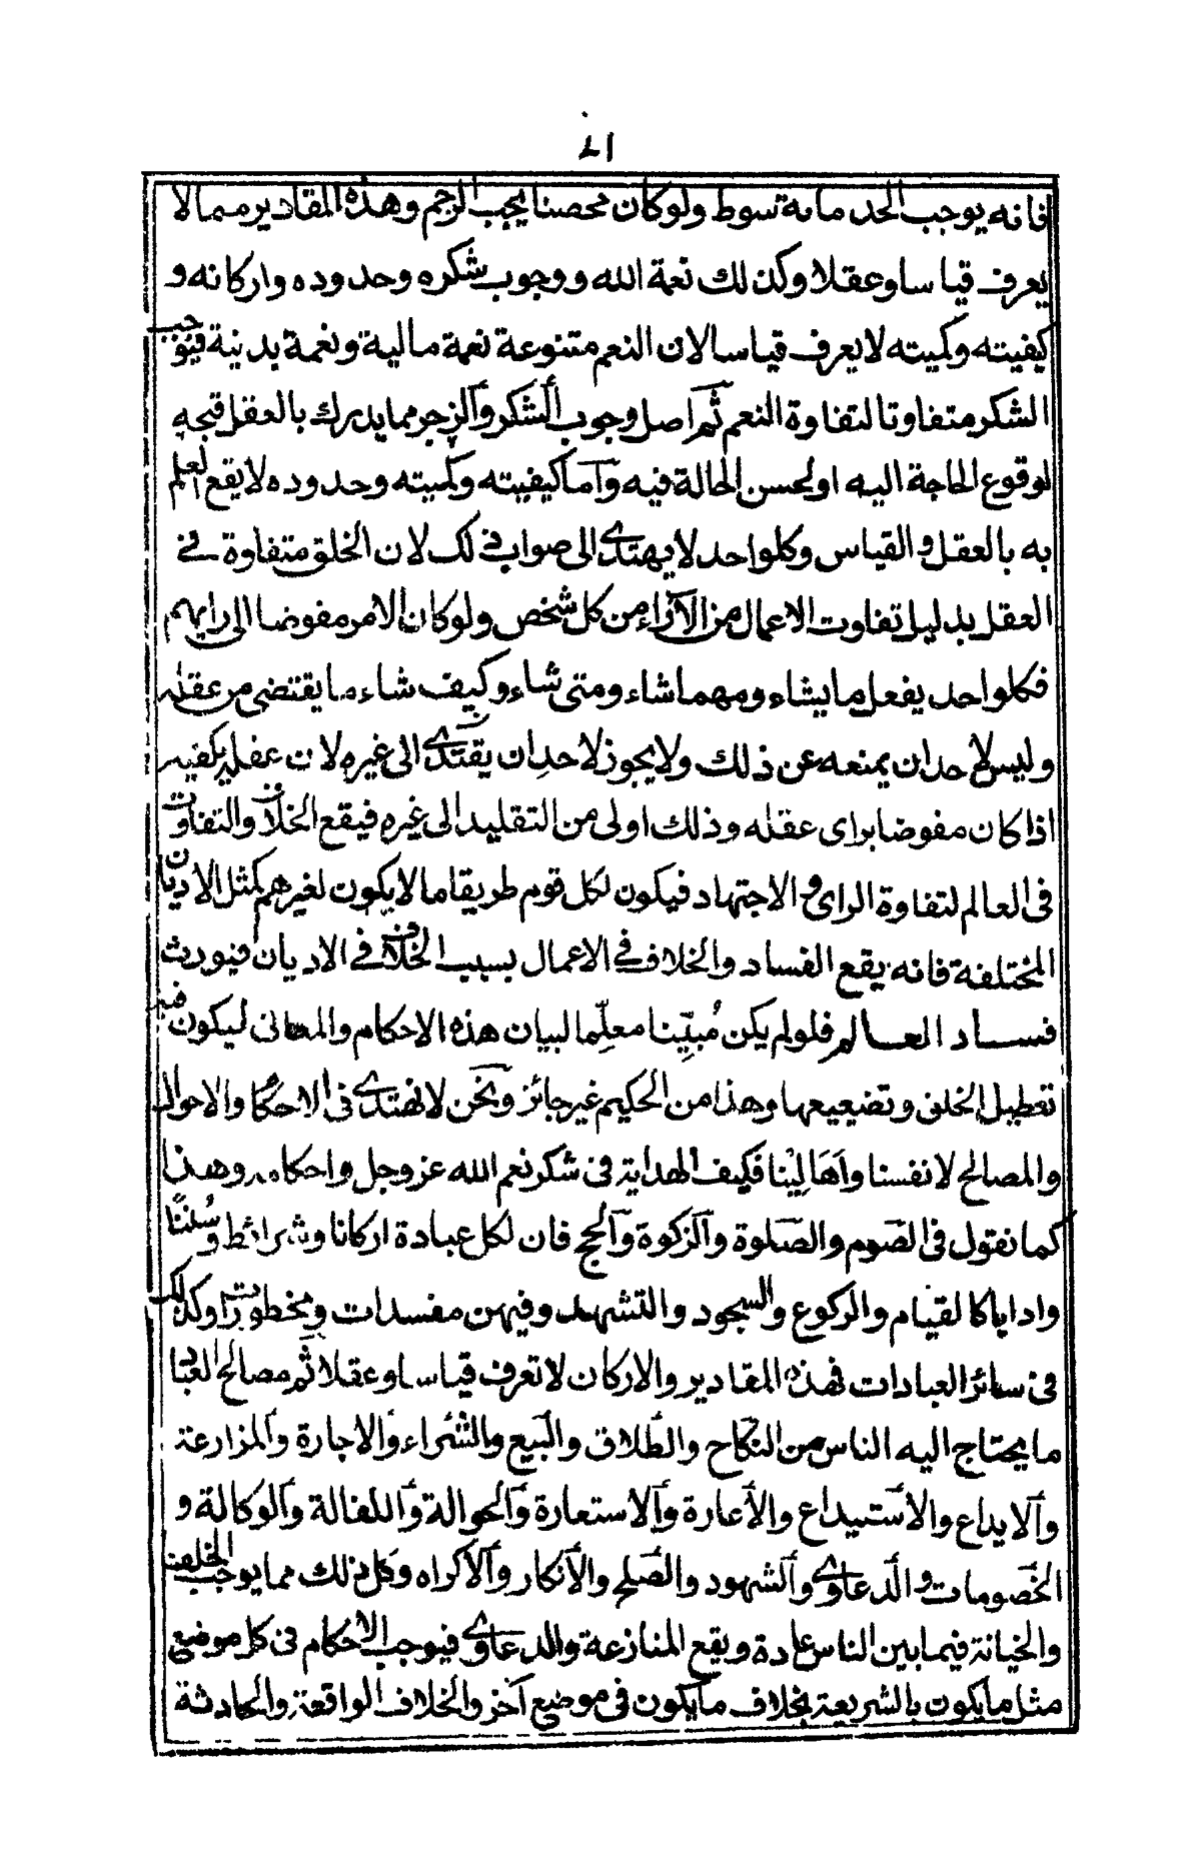 فانه يوجب الحد مائة سوط ولو كان محصنا يجب الرجم وهذه المقادير مما لا
يعرف قياسا وعقلا وكذلك نعمة الله ووجوب شكره وحدوده واركانه و
كيفيته وكميته لا يعرف قياسا لان النعم متنوعة نعمة مالية ونعمة بدنية فيوجب
الشكر متفاوتا لتفاوة النعم ثم اصل وجوب الشكر والزجر مما يدرك بالعقل قبحه
لوقوع الحاجة اليه او لحسن الحالة فيه وآما كيفيته وكميته وحدوده لا يقع العلم
به بالعقل والقياس وكلواحد لا يهتدى الى صواب فى لك لان الخلق متفاوة فى
العقل بدليل تفاوت الاعمال من الآراء من كل شخص ولو كان الامر مفوضا الى رايهم
فكلواحد يفعل ما يشاء ومهما شاء ومتى شاء وكيف شاء ما يقتضى من عقله
وليس لاحد ان يمنعه عن ذلك ولا يجوز لاحد ان يقتدى الى غيره لان عقله يكفيه
اذا كان مفوضا براى عقله وذلك اولى من التقليد الى غيره فيقع الخلاف والتفاوت
فى العالم لتفاوة الراى والاجتهاد فيكون لكل قوم طريقا ما لا يكون لغيرهم كمثل الاديان
المختلفة فانه يقع الفساد والخلاف فى الاعمال بسبب الخلاف فى الاديان فيورث
فساد العالم فلو لم يكن مُبيِّنا معلِّما لبيان هذه الاحكام والمعانى ليكون فيه
تعطيل الخلق وتضييعها وهذا من الحكيم غير جائز ونحن لا نهتدى فى الاحكام والاحوال
والمصالح لانفسنا واَهَالِيْنا فكيف الهداية فى شكر نعم الله عز وجل واحكامه وهذا
كما نقول فى الصوم والصلوة والزكوة والحج فان لكل عبادة اركانا وشرائط وسُننًا
وادابا كالقيام والركوع والسجود والتشهد وفيهن مفسدات ومخطورات وكذلك
فى سائر العبادات فهذه المقادير والاركان لا تعرف قياسا وعقلا ثم مصالح العباد
ما يحتاج اليه الناس من النكاح والطلاق والبيع والشراء والاجارة والمزارعة
والايداع والاستيداع والاعارة والاستعارة والحوالة واللفالة والوكالة و
الخصومات والدعاوى والشهود والصلح والانكار والاكراه وكل ذلك مما يوجب الخلف
والخيانة فيما بين الناس عادة ويقع المنازعة والدعاوى فيوجب الاحكام فى كل موضع
مثل ما يكون بالشريعة بخلاف ما يكون فى موضع آخر والخلاف الواقعة والحادثة